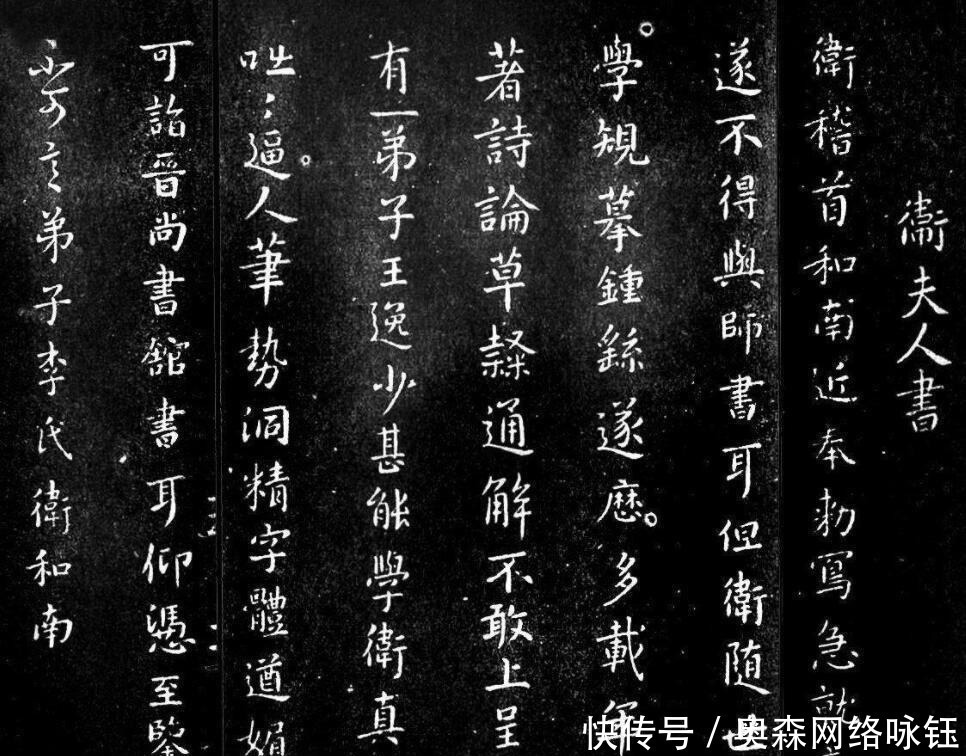 衛夫人書
衛稽首和南近奉勅寫急就
遂不得與師書耳但衛随世
學規摹鍾繇遂歷多載
著詩論草隸通解不敢上呈
有一弟子王逸少甚能學衛真
咄〻逼人筆勢洞精字體遒媚
可詣晉尚書館書耳仰憑至鑒
不可言弟子李氏衛和南
快传号/奥森网络咏钰